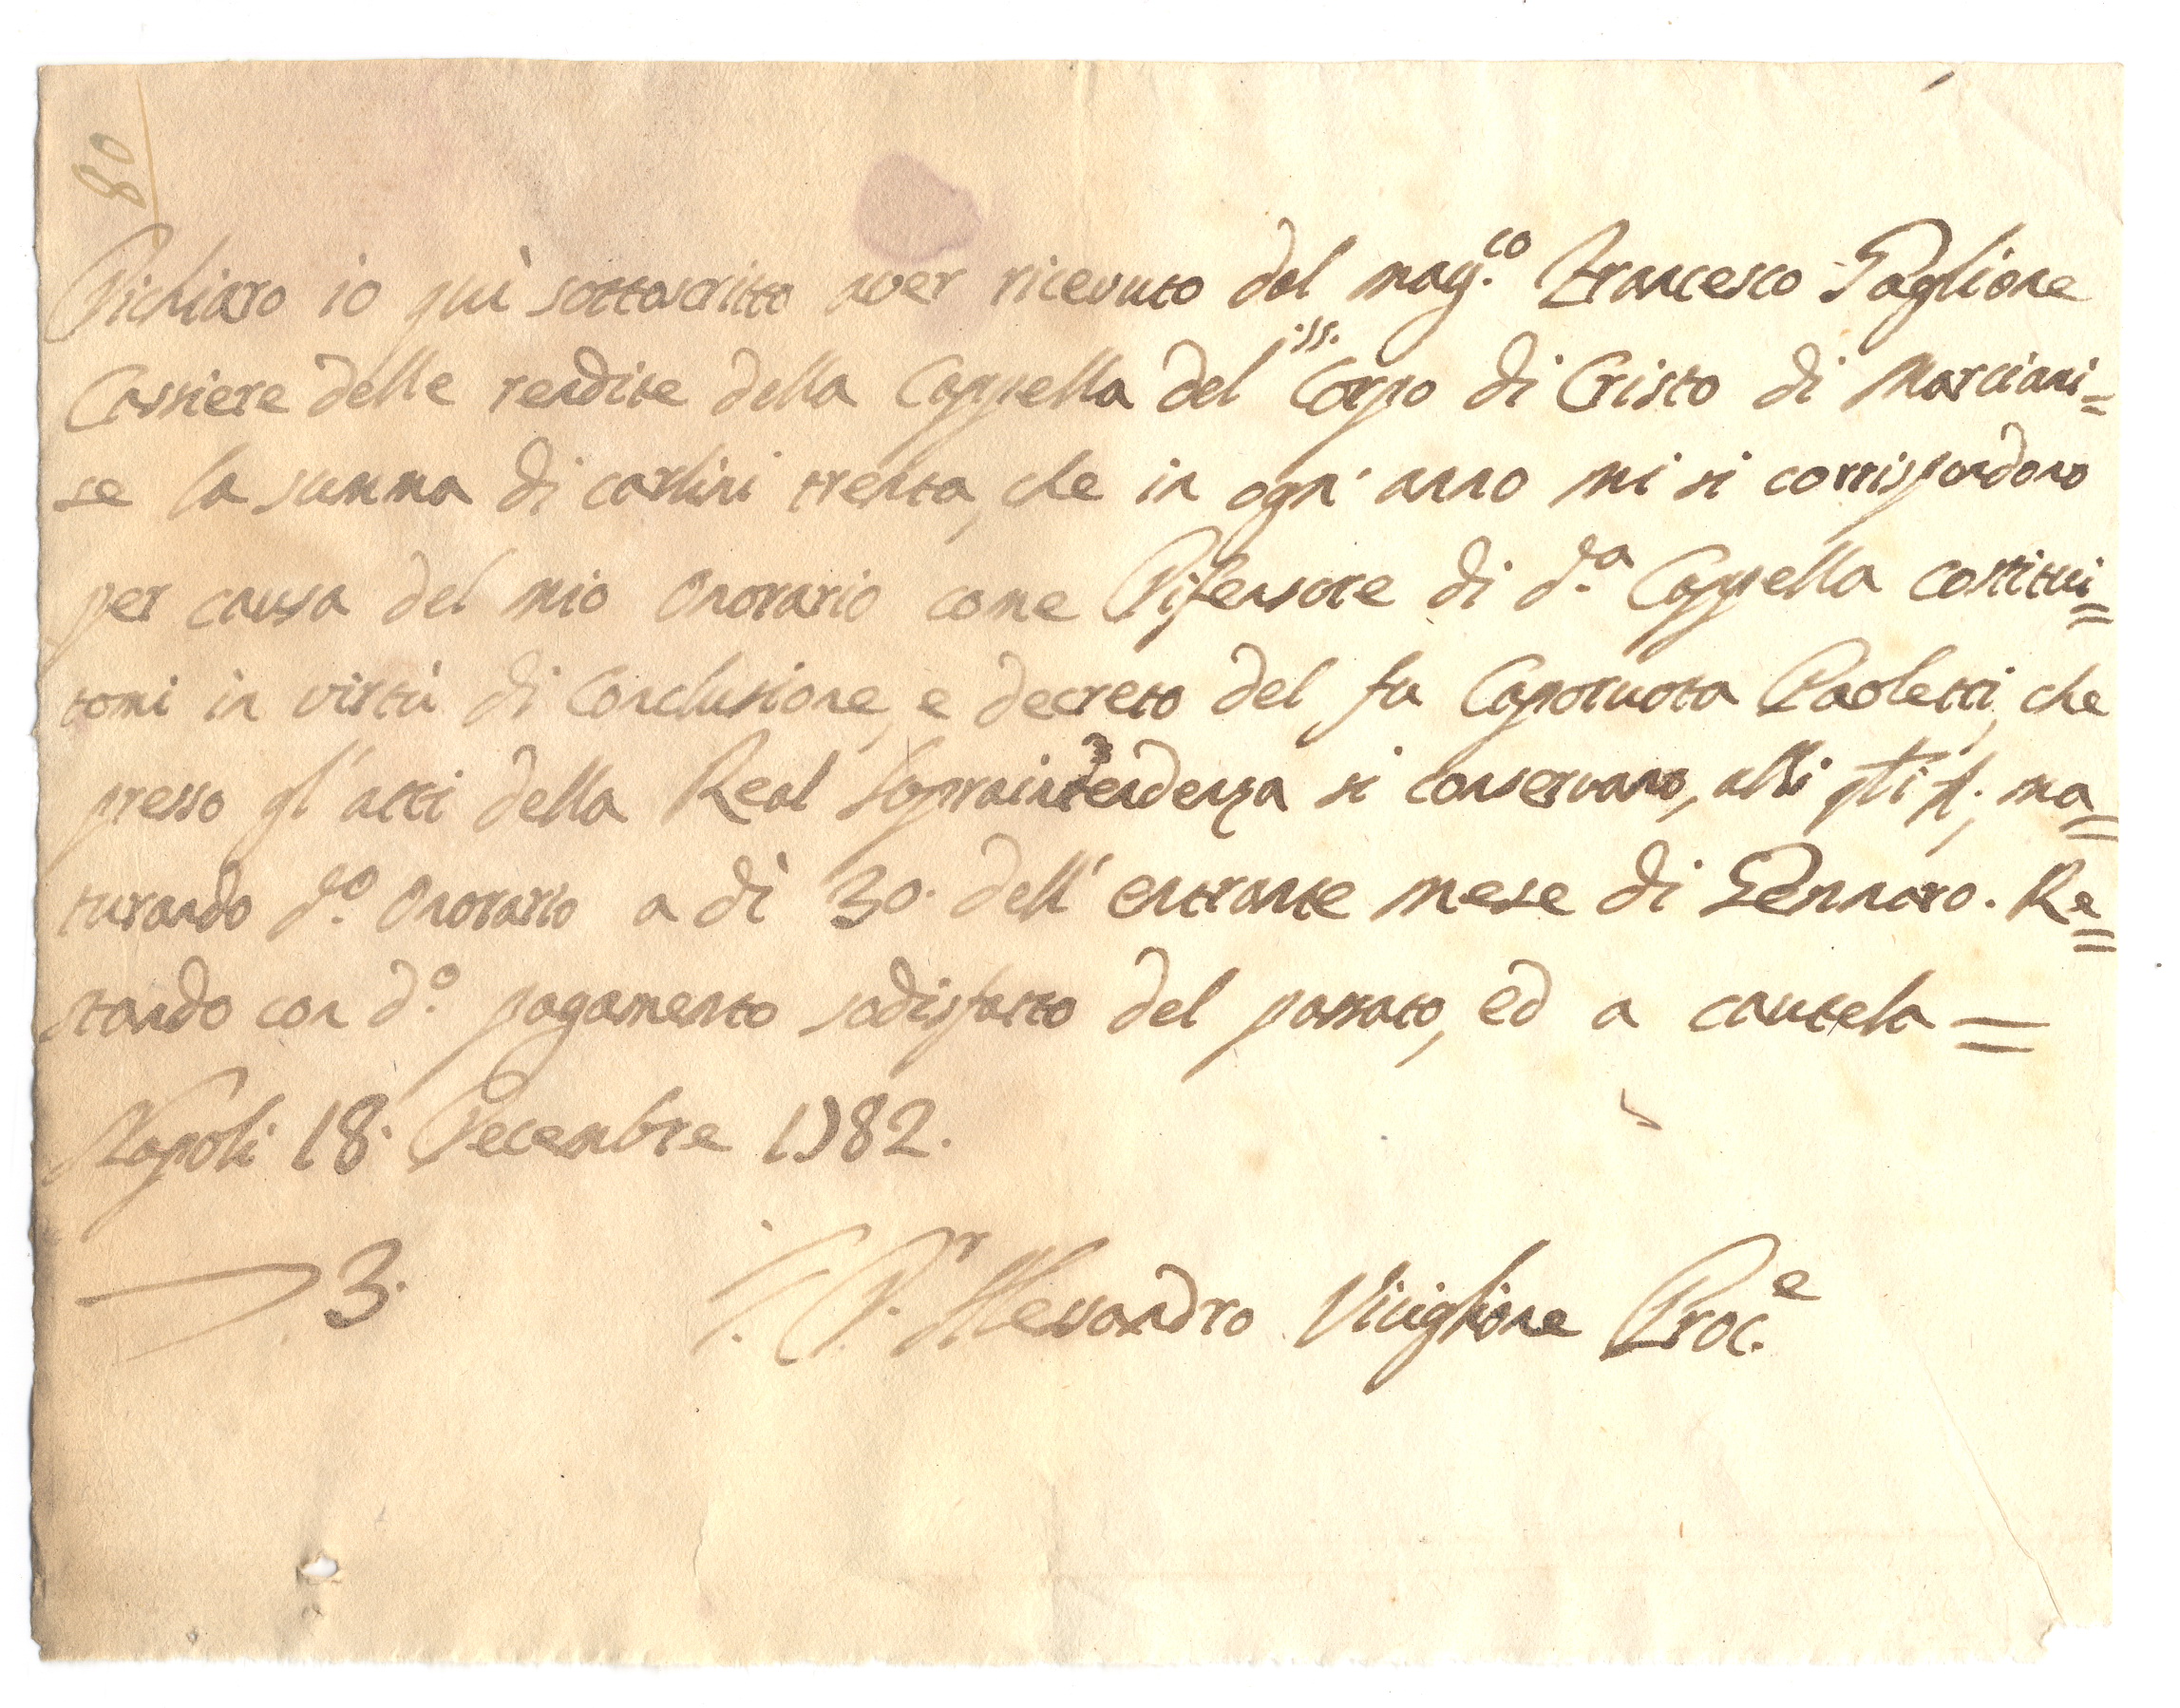 80
Dichiaro io quì sottoscritto aver ricevuto dal mag.co Francesco Paglione
Cassiere delle rendite della Cappella del ss. Corpo di Cristo di Marciani=
se la summa di carlini trenta, che in ogn' anno mi si corrispondono
per causa del mio Onorario come Difensore di d.a Cappella costitui=
tomi in virtù di Conclusione, e decreto del fu Caporuota Paoletti, che
presso gl' atti della Real Sopraintendenza si conservano, alli ma=
turando d.o Onorario a dì 30. dell' entrante mese di Gennaro. Re=
stando con d.o pagamento sodisfatto del passato, ed a cautela =
Napoli 18. Decembre 1782.
D. 3. D.r Alessandro Viciglione Proc.e